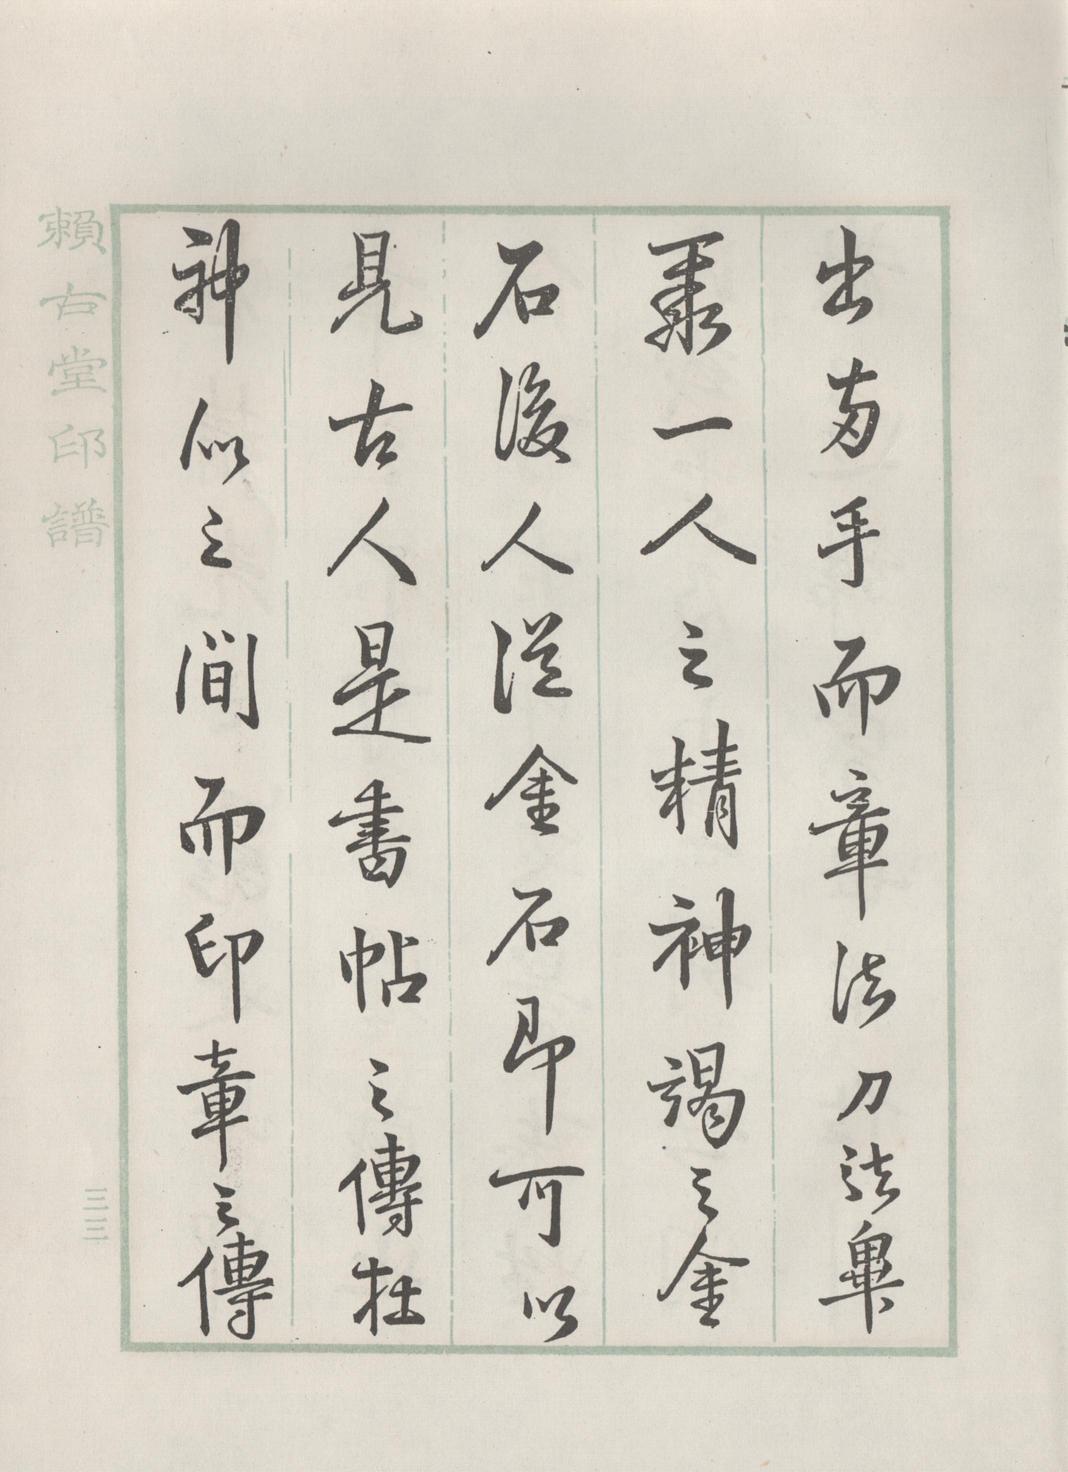 出兩手而章法刀法畢
聚一人之精神竭之金
石後人從金石即可以
見古人是書帖之傳在
神似之間而印章之傳
賴古堂印譜
三三